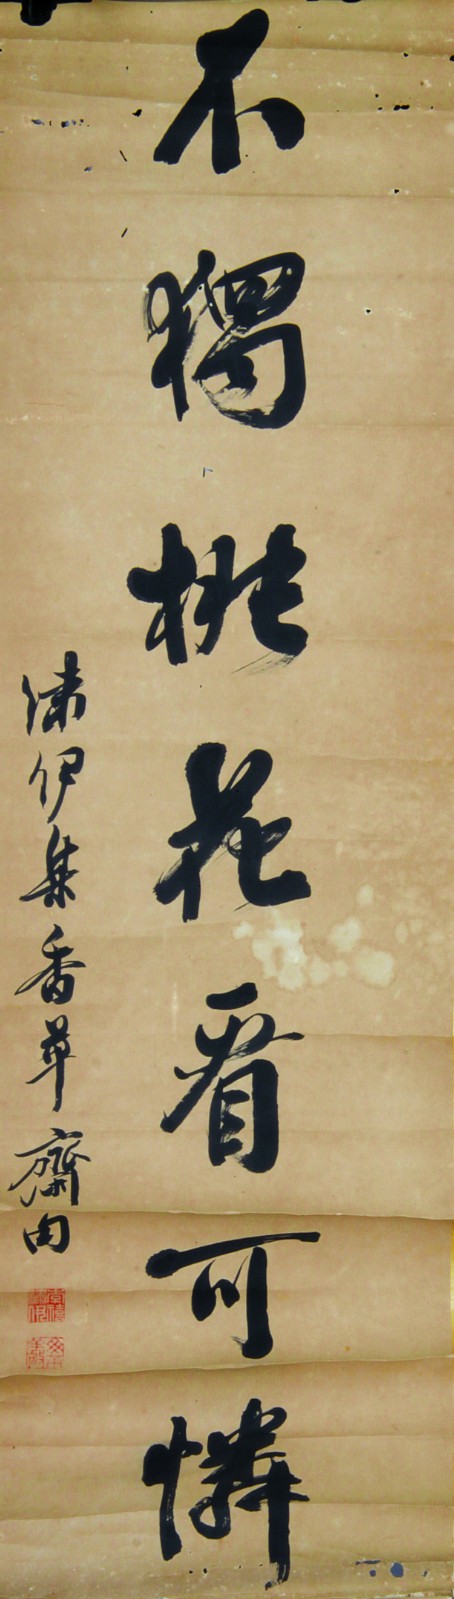 不獨桃花看可憐
伊集香草齋由